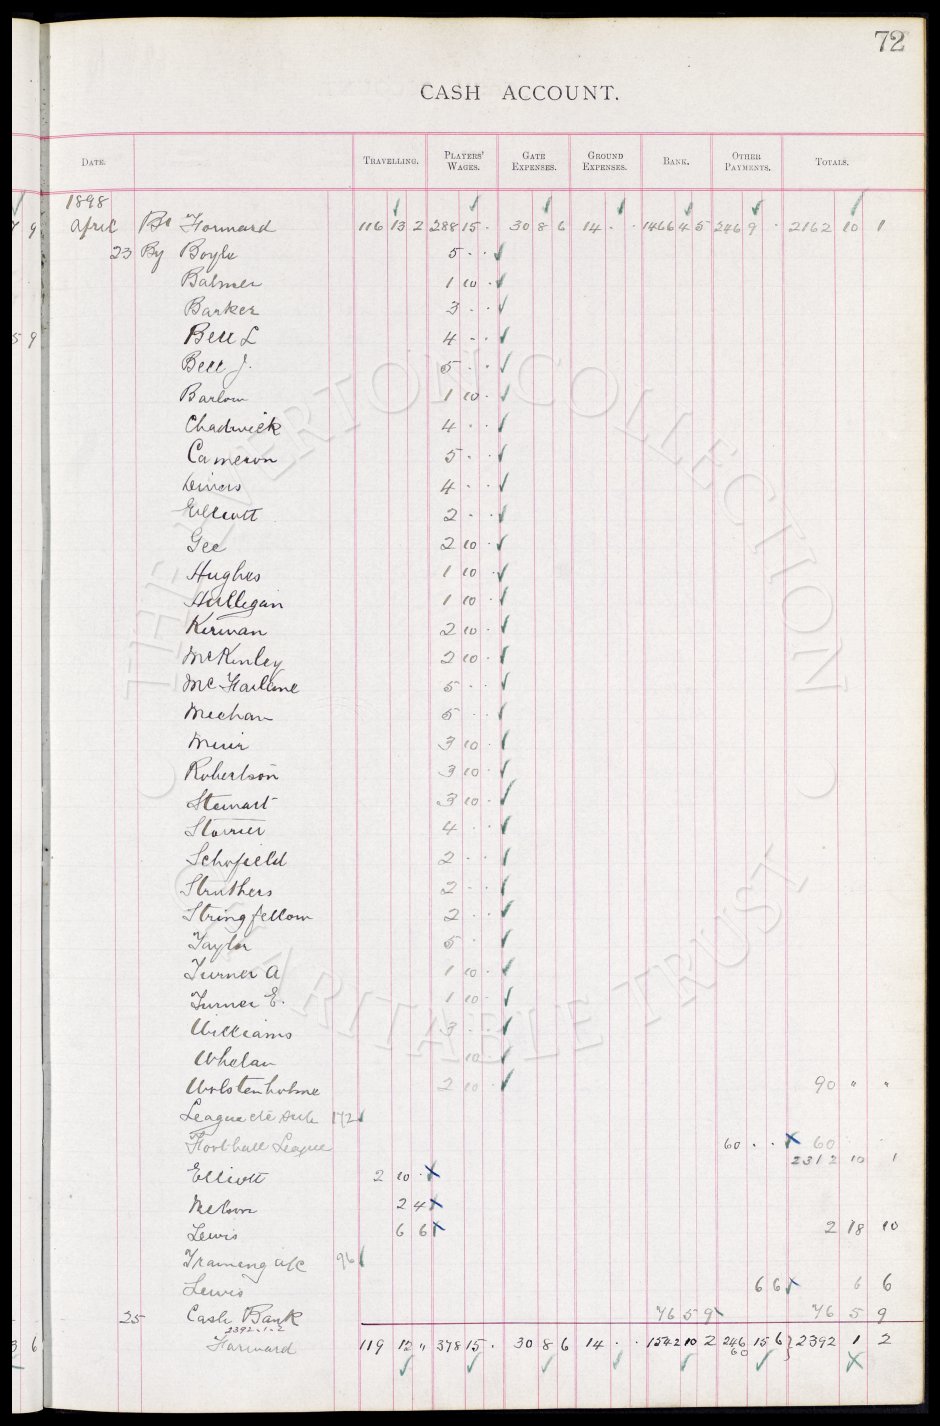 72
CASH ACCOUNT.
DATE. TRAVELLING. PLAYERS' WAGES. GATE EXPENSES. GROUND EXPENSES. BANK. OTHER PAYMENTS. TOTALS.
1898
April Bt Forward 116 13 2 288 15 . 30 8 6 14 . . 1466 4 5 246 9 . 2162 10 1
23 By Boyle 5 . .
Balmer 1 10 .
Barker 3 . .
Bell L 4 . .
Bell J. 5 . .
Barlow 1 10 .
Chadwick 4 . .
Cameron 5 . .
Divers 4 . .
Elliott 2 . .
Gee 2 10 .
Hughes 1 10 .
Hulligan 1 10 .
Kirwan 2 10 .
McKinley 2 10 .
McFarlane 5 . .
Meehan 5 . .
Muir 3 10 .
Robertson 3 10 .
Stewart 3 10 .
Storrier 4 . .
Schofield 2 . .
Struthers 2 . .
Stringfellow 2 . .
Taylor 5 . .
Turner A 1 10 .
Turner E. 1 10 .
Williams 3 . .
Whelan 10 .
Wolstenholme 2 10 . 90 " "
League 142
Football League 60 . . 60
2312 10 1
Elliott 2 10 .
Nelson 2 4
Lewis 6 6 2 18 10
Training a/c 96
Lewis 6 6 6 6
25 Cash Bank 76 5 9 76 5 9
2392-1-2
Forward 119 12 " 378 15 . 30 8 6 14 . . 1542 10 2 246 15 6 2392 1 2
60
THE EVERTON COLLECTION
CHARITABLE TRUST